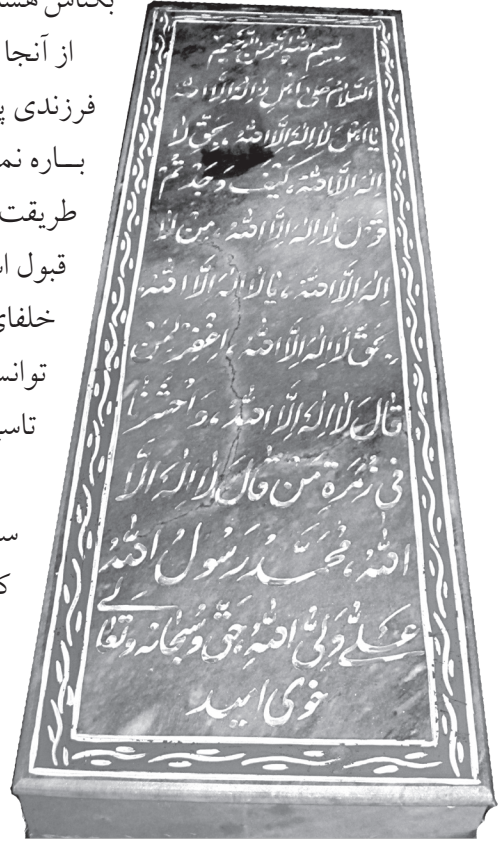 بکتاش هست
از آنجا
فرزندی پ
بــاره نم
طریقت
قبول ا
خلفای
توانس
تاسی
س
ک
بسم الله الرحمن الرحیم
السلام علی اهل لا اله الا الله
یا اهل لا اله الا الله، بحق لا
اله الا الله، کیف وجدتم
قول لا اله الا الله، من لا
اله الا الله، یا لا اله الا الله
بحق لا اله الا الله، اغفر لمن
قال لا اله الا الله، واحشرنا
فی زمرة من قال لا اله الا
الله، محمد رسول الله
علی ولی الله حق وسبحانه وتعالی